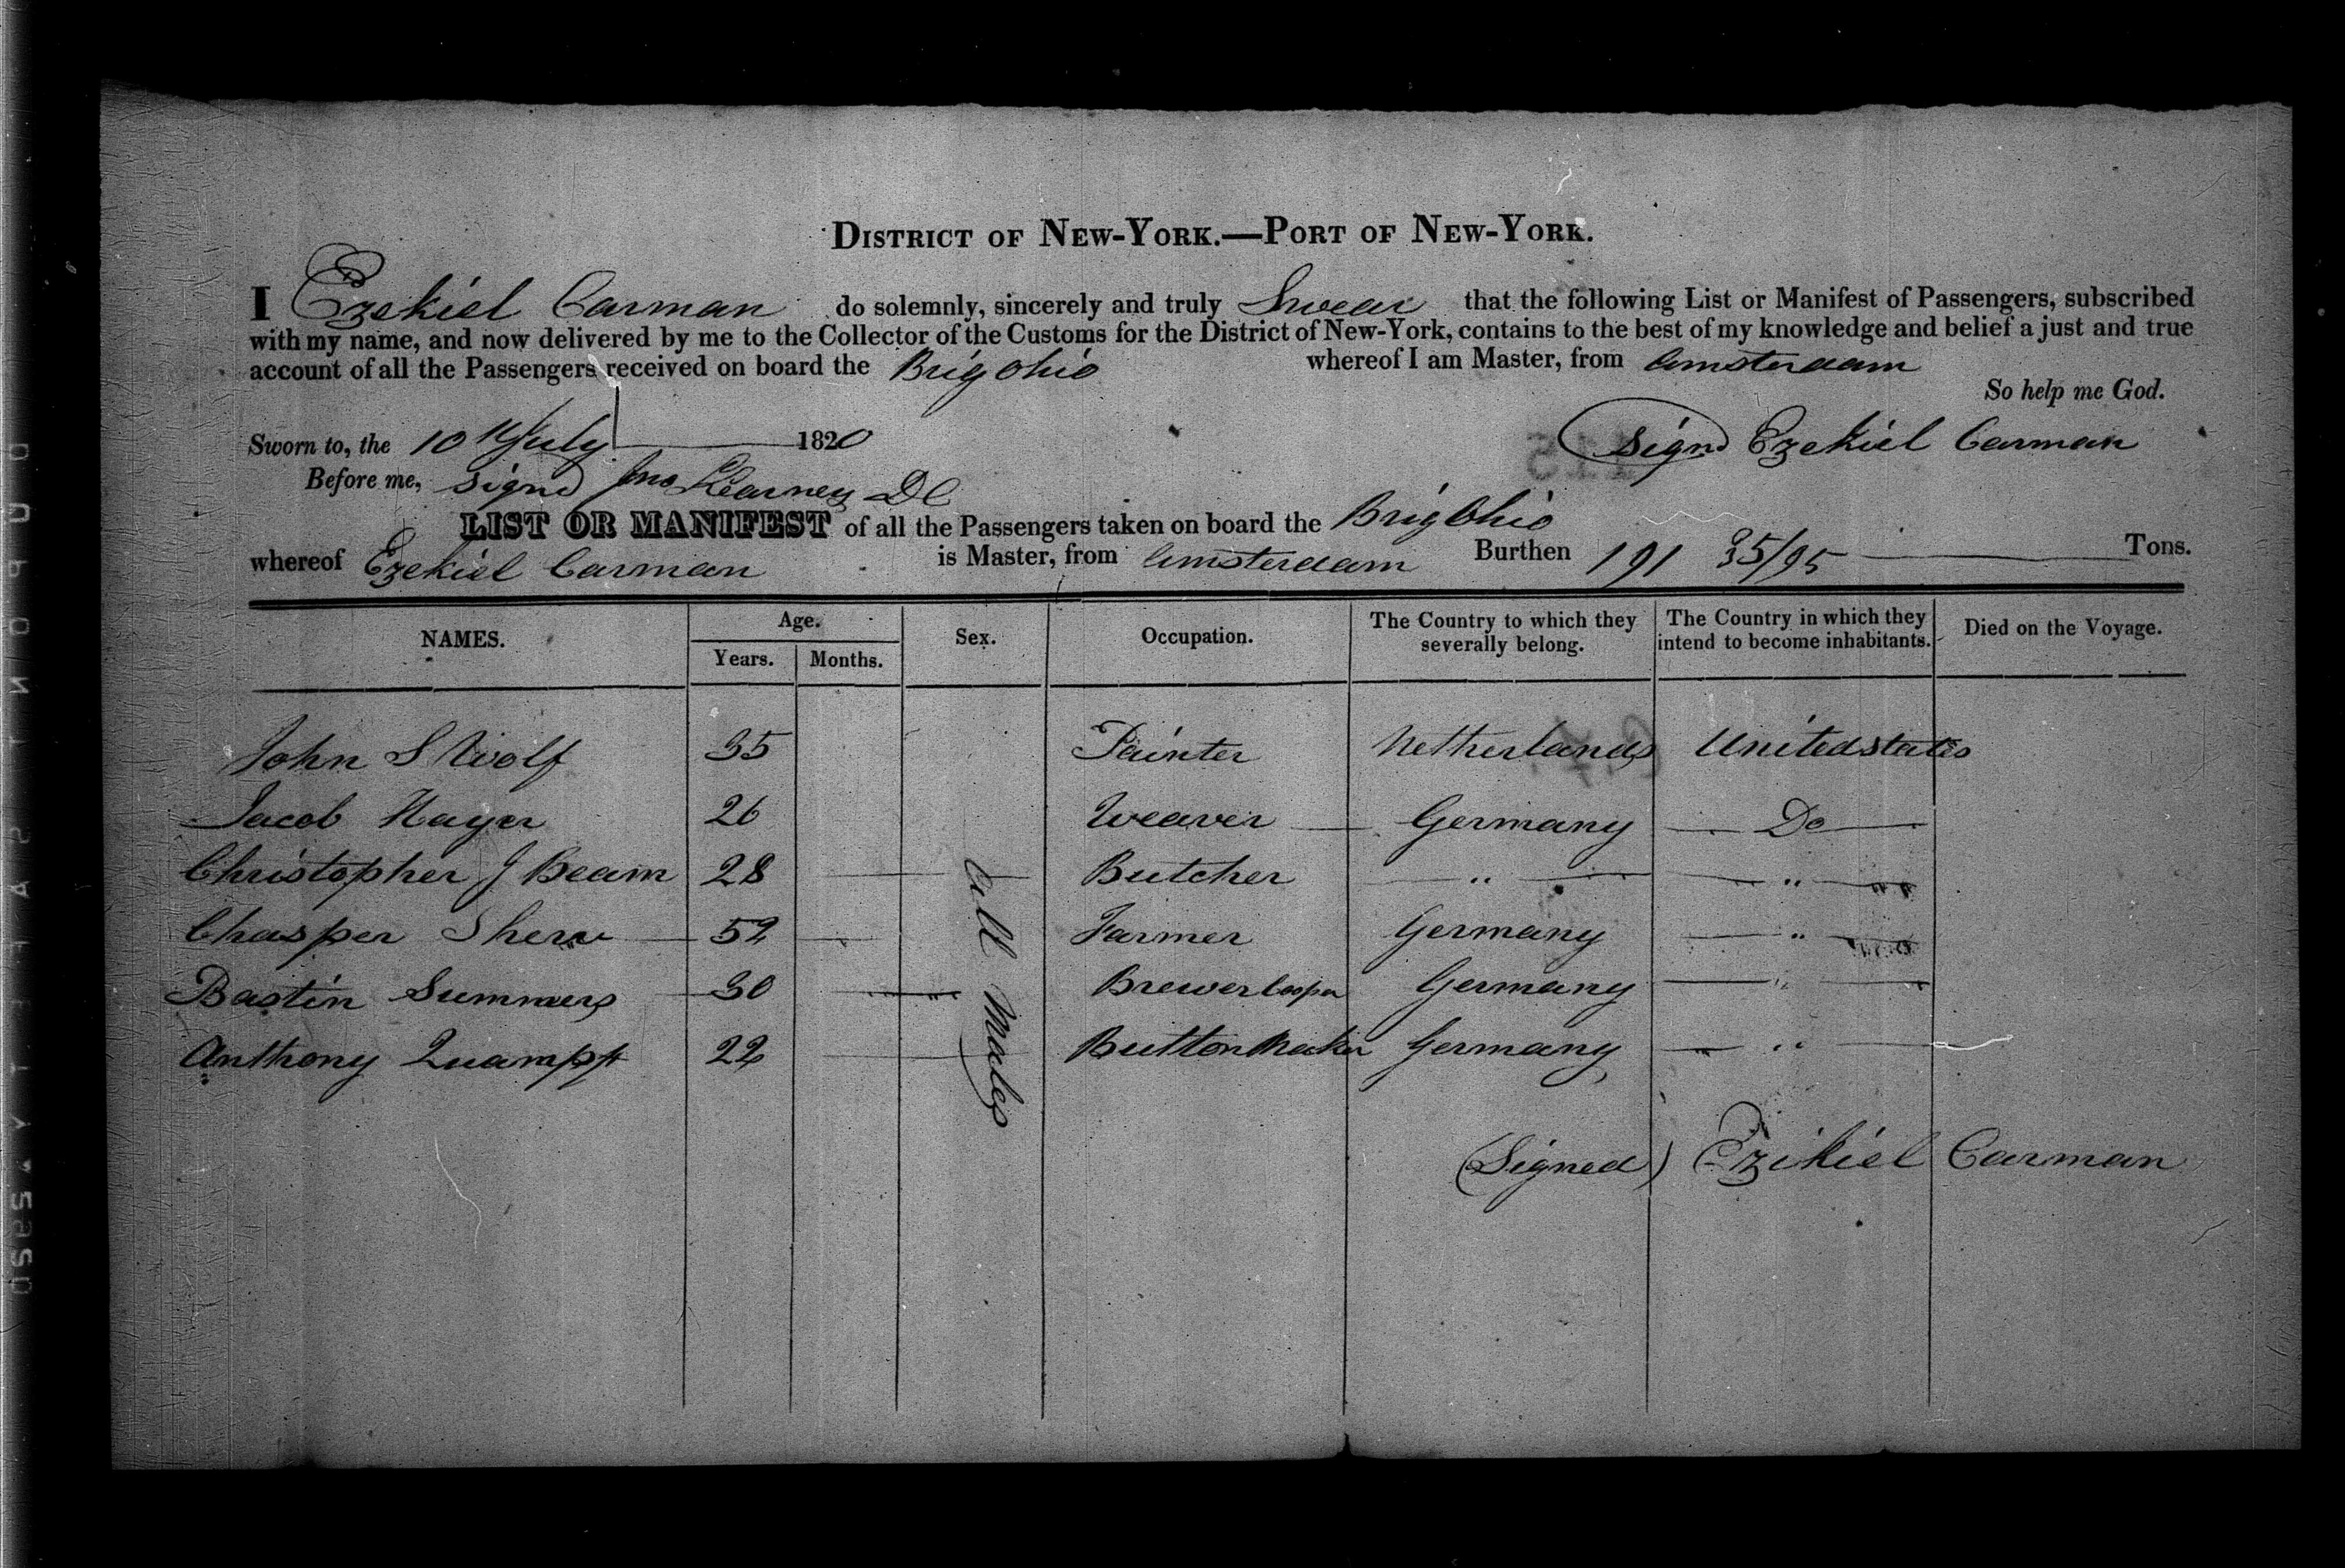 DISTRICT OF NEW-YORK.—PORT OF NEW-YORK.
I Ezekiel Carman do solemnly, sincerely and truly Swear that the following List or Manifest of Passengers, subscribed
with my name, and now delivered by me to the Collector of the Customs for the District of New-York, contains to the best of my knowledge and belief a just and true
account of all the Passengers received on board the Brig Ohio whereof I am Master, from Amsterdam
So help me God.
Sworn to, the 10th July 1820 Signd Ezekiel Carman
Before me, signd Jno Kearney DC
LIST OR MANIFEST of all the Passengers taken on board the Brig Ohio
whereof Ezekiel Carman is Master, from Amsterdam Burthen 191 35/95 Tons.
NAMES. Age. Years. Months. Sex. Occupation. The Country to which they severally belong. The Country in which they intend to become inhabitants. Died on the Voyage.
John S Wolf 35 Painter Netherlands United states
Jacob Hayer 26 Weaver Germany Do
Christopher J Beam 28 Butcher " "
Chasper 52 Farmer Germany "
Bastin Summers 30 Brewer Cooper Germany "
Anthony 22 Button Maker Germany "
All Males
(Signed) Ezikiel Carman